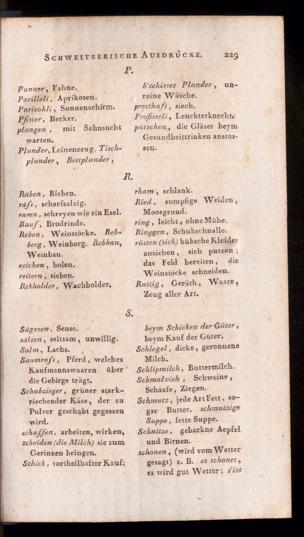 SCHWEITZERISCHE AUSDRÜCKE. 229
P.
Panner, Fahne.
Parilleli, Aprikosen.
Parisohli, Sonnenschirm.
Pfister, Becker.
plangen, mit Sehnsucht
warten.
Plunder, Leinenzeug. Tisch-
plunder, Bettplunder,
b'schisses Plunder, un-
reine Wäsche.
presthaft, siech.
Profitorli, Leuchterknecht.
pütschen, die Gläser beym
Gesundheittrinken anstos-
sen.
R.
Räben, Rieben.
räfs, scharfsalzig.
raren, schreyen wie ein Esel.
Bauf, Brodrinde.
Reben, Weinstöcke. Reb-
berg, Weinberg. Rebbau,
Weinbau.
reichen, holen.
reitern, sieben.
Rekholder, Wachholder,
rham, schlank.
Ried, sumpfige Weiden,
Moosgrund.
ring, leicht, ohne Mühe.
Ringgen, Schuhschnalle.
rüsten (sich) hübsche Kleider
anziehen, sich putzen;
das Feld bereiten, die
Weinstöcke schneiden.
Rustig, Geräth, Waare,
Zeug aller Art.
S.
Sägesen, Sense.
sälzen, seltsam, unwillig.
Salm, Lachs.
Saumrofs, Pferd, welches
Kaufmannswaaren über
die Gebirge trägt.
Schabzieger, grüner stark-
riechender Käse, der zu
Pulver geschabt gegessen
wird.
schaffen, arbeiten, wirken,
scheiden (die Milch) sie zum
Gerinnen bringen.
Schick, vortheilhafter Kauf;
beym Schicken der Güter,
beym Kauf der Güter.
Schlegel, dicke, geronnene
Milch.
Schlipmilch, Buttermilch.
Schmalvieh, Schweine,
Schaafe, Ziegen.
Schmutz, jede Art Fett, so-
gar Butter. schmutzige
Suppe, fette Suppe.
Schnitze, gebackne Aepfel
und Birnen.
schonen, (wird vom Wetter
gesagt) z. B. es schonet,
es wird gut Wetter; s'ist